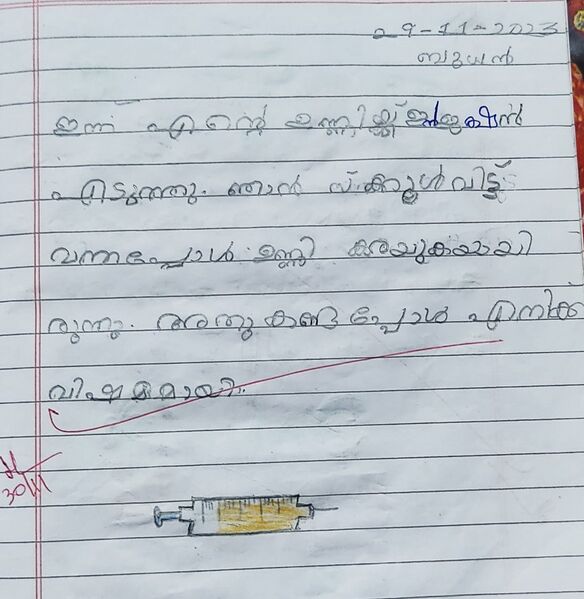 29-11-2023
ബുധൻ
ഇന്ന് എന്റെ ഉണ്ണിയ്ക്ക് ഇൻജക്ഷൻ
എടുത്തു. ഞാൻ സ്ക്കൂൾ വിട്ട്
വന്നപ്പോൾ ഉണ്ണി കരയുകയായി
രുന്നു. അതു കണ്ടപ്പോൾ എനിക്ക്
വിഷമമായി.
30/11